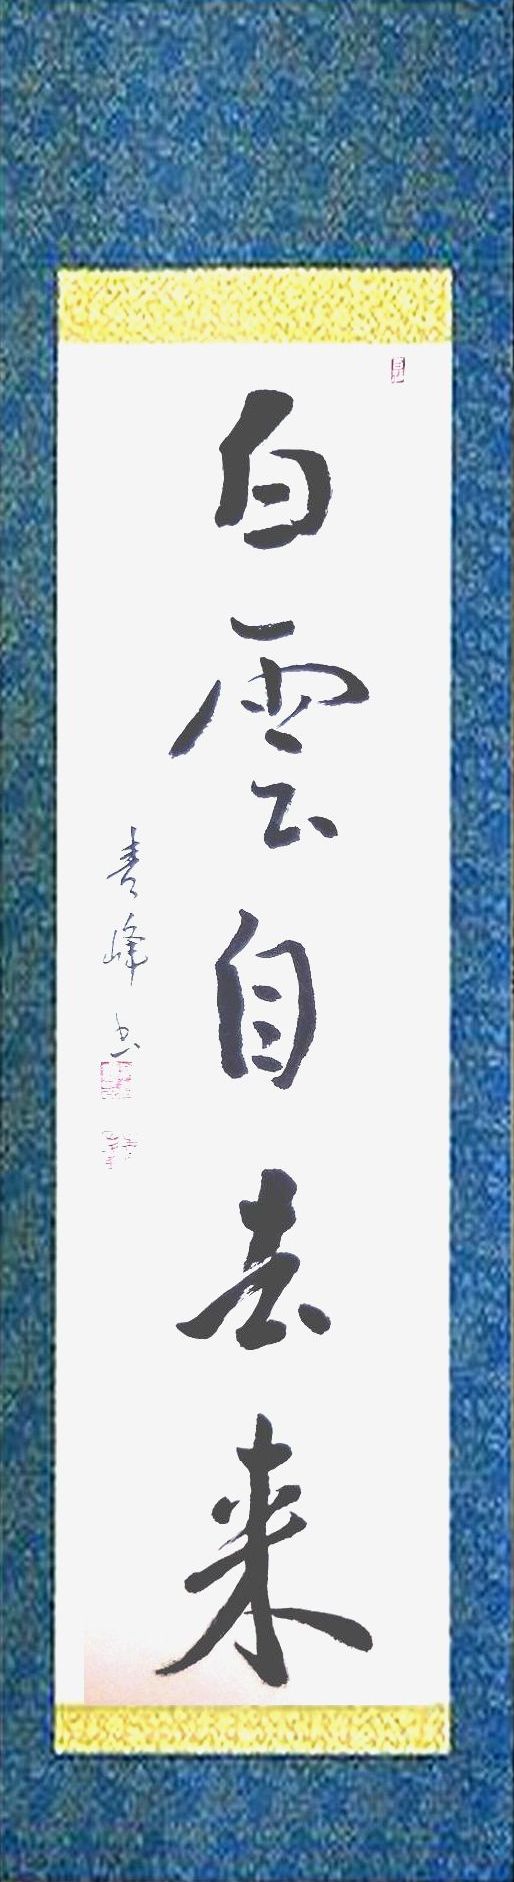 白雲自去来
青峰書